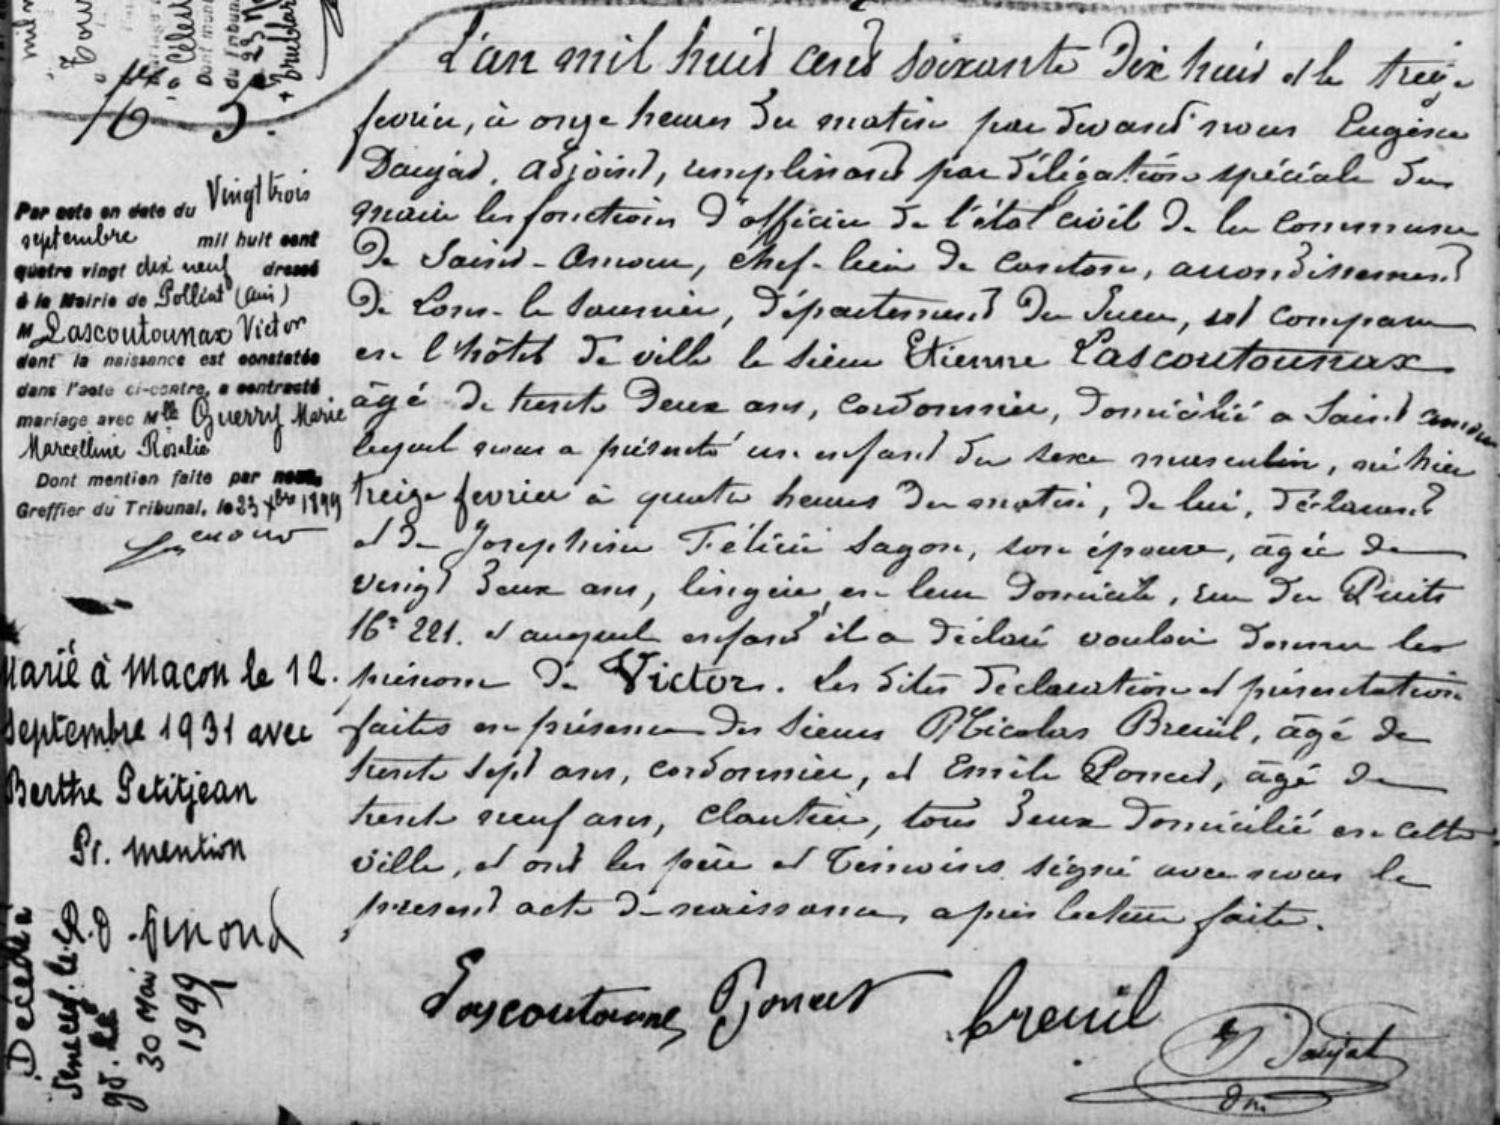 16 5.
Par acte en date du Vingt trois
septembre mil huit cent
quatre vingt dix neuf dressé
à la Mairie de Polliat (Ain)
M Lascoutounax Victor
dont la naissance est constatée
dans l'acte ci-contre, a contracté
mariage avec Mlle Querry Marie
Marcelline Rosalie
Dont mention faite par nous,
Greffier du Tribunal, le 23 Xbre 1899
Marié à Macon le 12.
Septembre 1931 avec
Berthe Petitjean
Pr. mention
Décédé à
Senecey le
gd. le
30 Mai
1949
L'an mil huit cent soixante Dix huit et le treize
fevrier, à onze heures du matin par devant nous Eugène
Daujat, adjoint, remplissant par délégation spéciale du
maire les fonctions d'officier de l'état civil de la commune
de Saint-Amour, chef-lieu de canton, arrondissement
de Lons-le Saunier, département du Jura, est comparu
en l'hôtel de ville le sieur Etienne Lascoutounax
âgé de trente deux ans, cordonnier, domicilié a Saint amour
lequel nous a présenté un enfant du sexe masculin, né hier
treize fevrier à quatre heures du matin, de lui, déclarant
et de Josephine Félicie Sagon, son épouse, âgée de
vingt deux ans, lingère, en leur domicile, rue du Puits
221. et auquel enfant il a déclaré vouloir donner les
prénom de Victor. Les dites déclaration et présentation
faites en présence des sieurs Nicolas Breuil, âgé de
trente sept ans, cordonnier, et Emile Poncet, âgé de
trente neuf ans, cloutier, tous deux domicilié en cette
ville, et ont les père et témoins signé avec nous le
présent acte de naissance, après lecture faite.
Lascoutounax Poncet Breuil
E Daujat